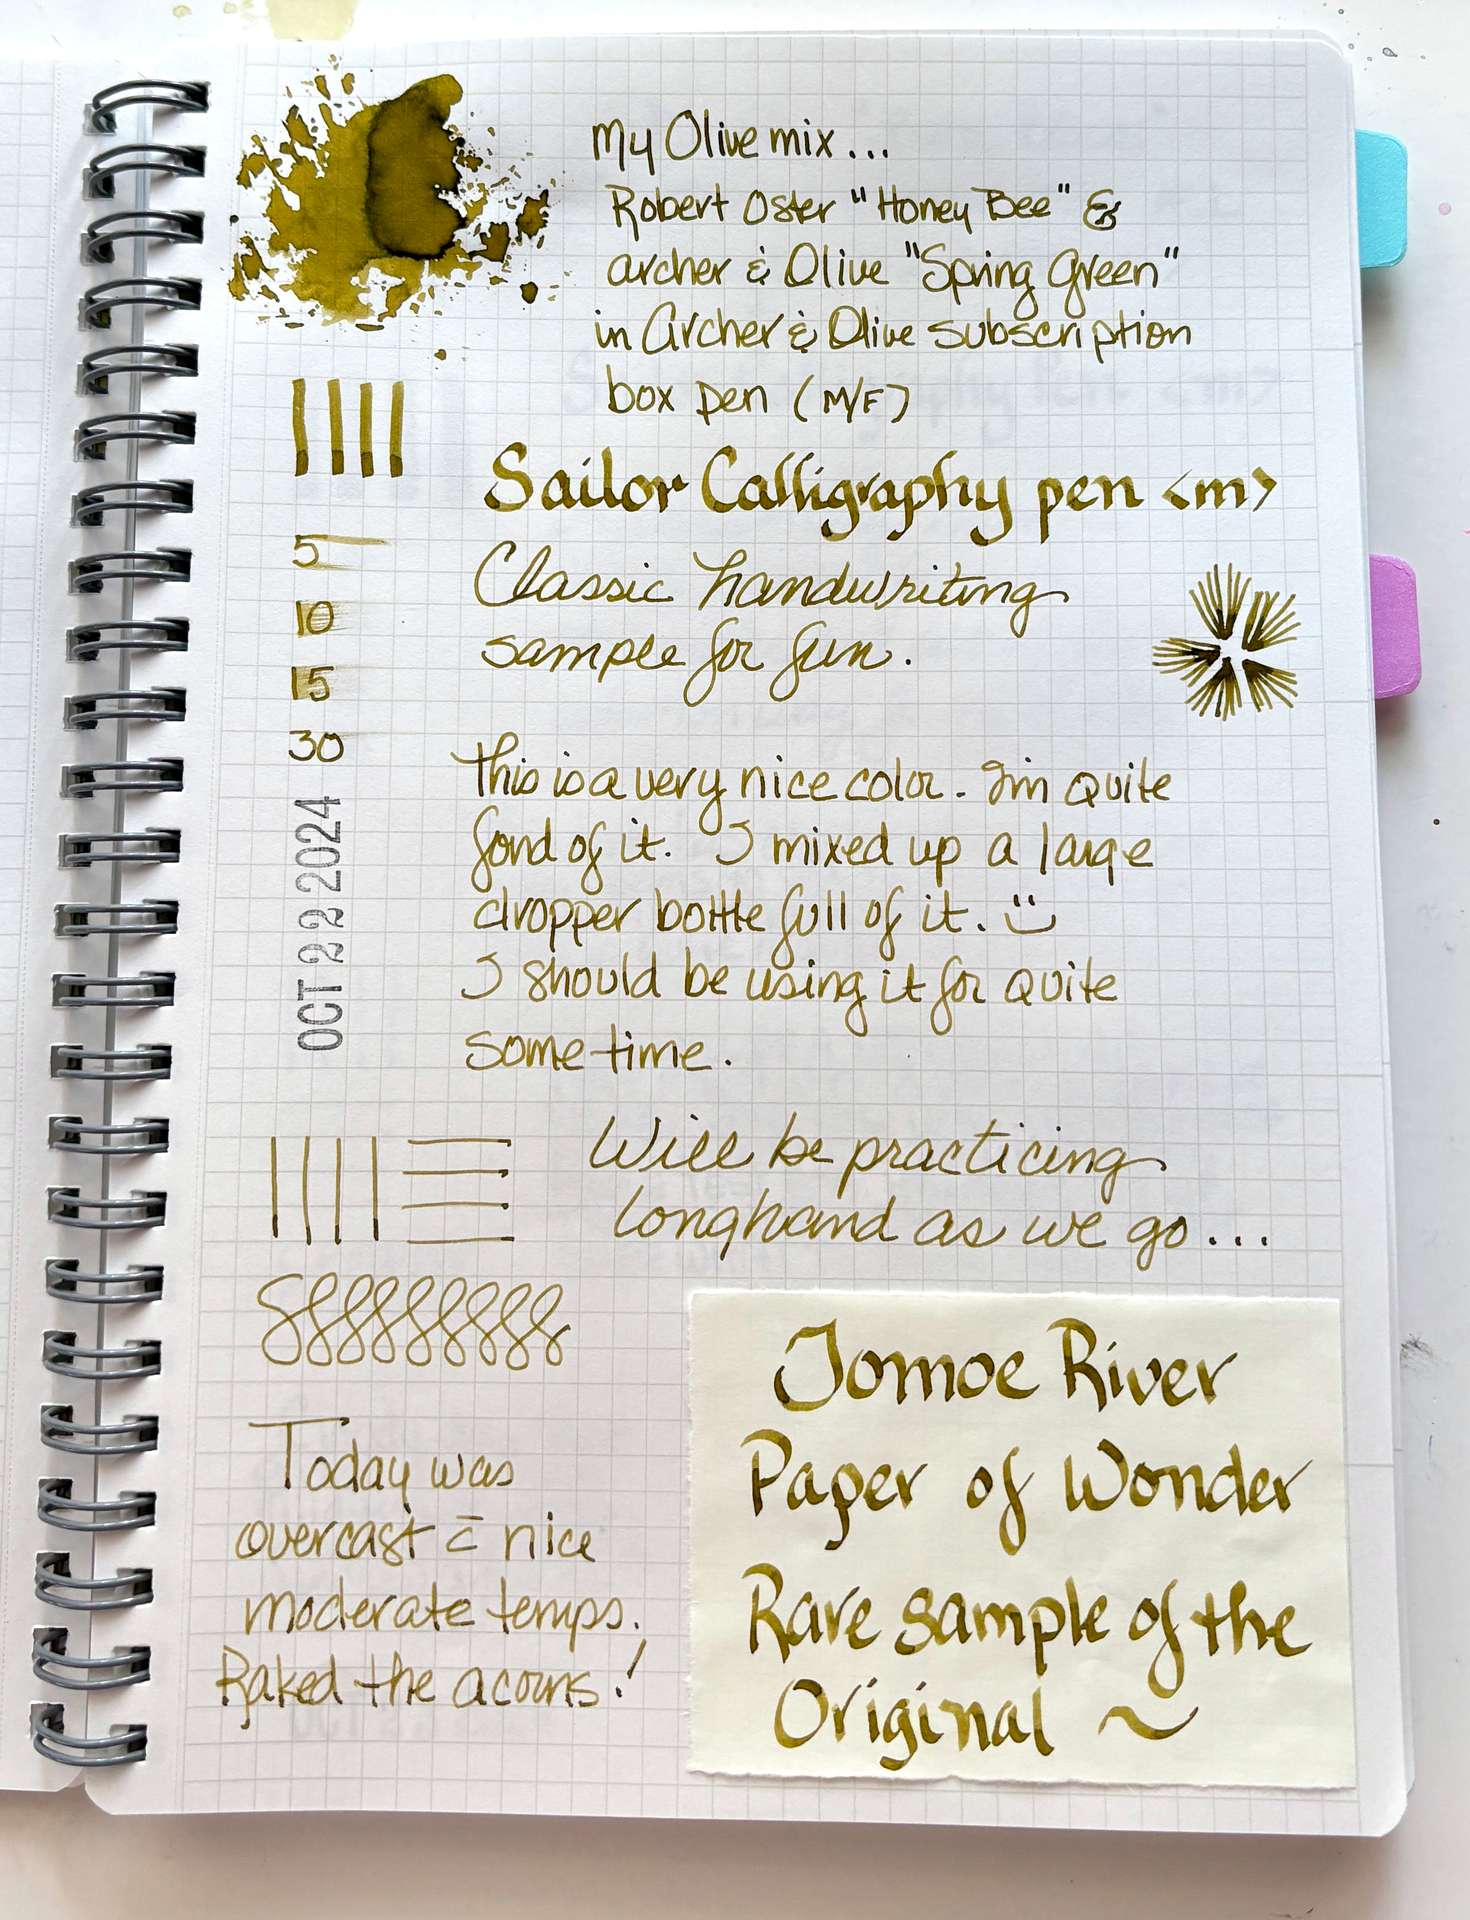 My Olive mix...
Robert Oster "Honey Bee" &
Archer & Olive "Spring Green"
in Archer & Olive subscription
box pen (M/F)
Sailor Calligraphy pen <m>
Classic handwriting
sample for fun.
5
10
15
30
OCT 22 2024
This is a very nice color. I'm quite
fond of it. I mixed up a large
dropper bottle full of it. ü
I should be using it for quite
some time.
Will be practicing
longhand as we go...
Today was
overcast c̄ nice
moderate temps.
Raked the acorns!
Tomoe River
Paper of Wonder
Rare sample of the
Original ~